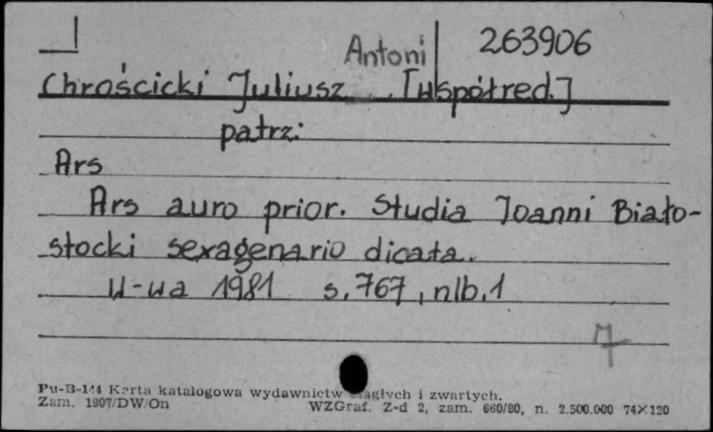 Antoni 263906
Chrościcki Juliusz [Współred.]
patrz:
Ars
Ars auro prior. Studia Joanni Biało-
stocki sexagenario dicata.
W-wa 1981 s. 767, nlb. 1
Pu-B-144 Karta katalogowa wydawnictw ciągłych i zwartych.
Zam. 1907/DW/On WZGraf. Z-d 2, zam. 660/80, n. 2.500.000 74×120